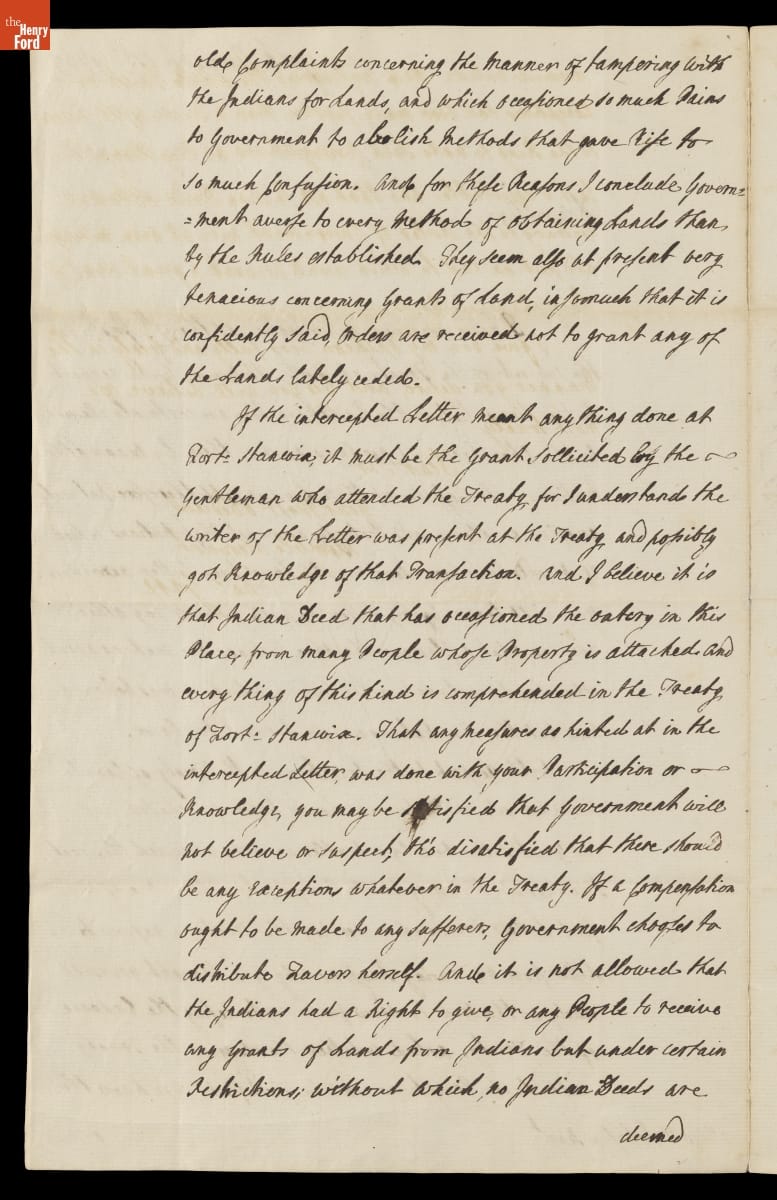 the
Henry
Ford
old Complaints concerning the manner of tampering with
the Indians for Lands, and which occasioned so much Pains
to Government to abolish Methods that gave Rise to
so much Confusion. And for these Reasons I conclude Govern=
=ment averse to every Method of obtaining Lands than
by the Rules established. They seem also at present very
tenacious concerning Grants of Land, insomuch that it is
confidently said, Orders are received not to grant any of
the Lands lately ceded.
If the intercepted Letter meant any thing done at
Fort= Stanwix, it must be the Grant Sollicited by the
Gentleman who attended the Treaty, for I understand the
writer of the Letter was present at the Treaty, and possibly
got Knowledge of that Transaction. And I believe it is
that Indian Deed that has occasioned the outcry in this
Place, from many People whose Property is attached and
every thing of this kind is comprehended in the Treaty
of Fort= Stanwix. That any measures as hinted at in the
intercepted Letter, was done with your Participation or
Knowledge, you may be satisfied that Government will
not believe or suspect, tho' disatisfied that there should
be any Exceptions whatever in the Treaty. If a Compensation
ought to be made to any sufferers, Government chooses to
distribute Favors herself. And it is not allowed that
the Indians had a Right to give, or any People to receive
any Grants of Lands from Indians but under certain
Restrictions; without which, no Indian Deeds are
deemed